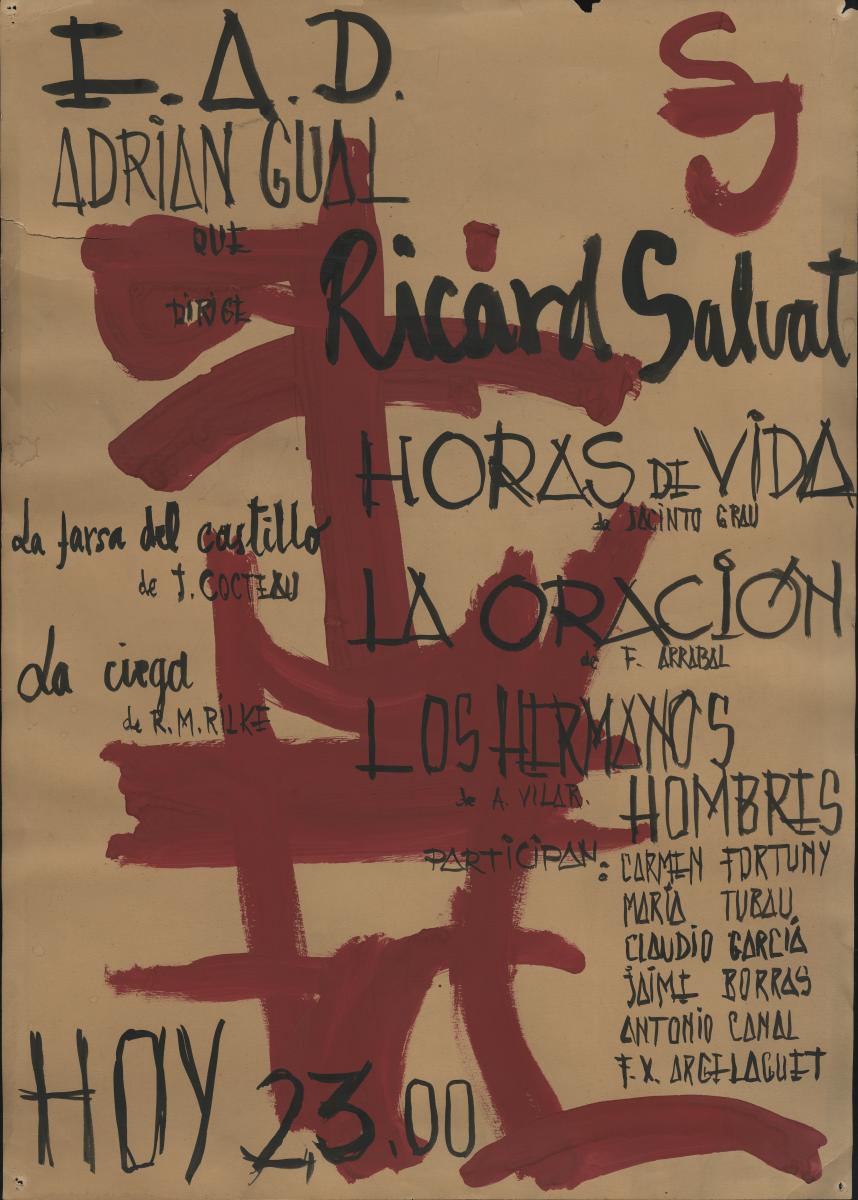 E.A.D.
ADRIAN GUAL
QUE
DIRIGE
Ricard Salvat
HORAS DE VIDA
de JACINTO GRAU
La farsa del castillo
de J. COCTEAU
LA ORACIÓN
de F. ARRABAL
La ciega
de R.M. RILKE
LOS HERMANOS
HOMBRES
de A. VILAR.
PARTICIPAN:
CARMEN FORTUNY
MARÍA TUBAU
CLAUDIO GARCIÁ
JAIME BORRAS
ANTONIO CANAL
F.X. ARGELAGUET
HOY 23.00